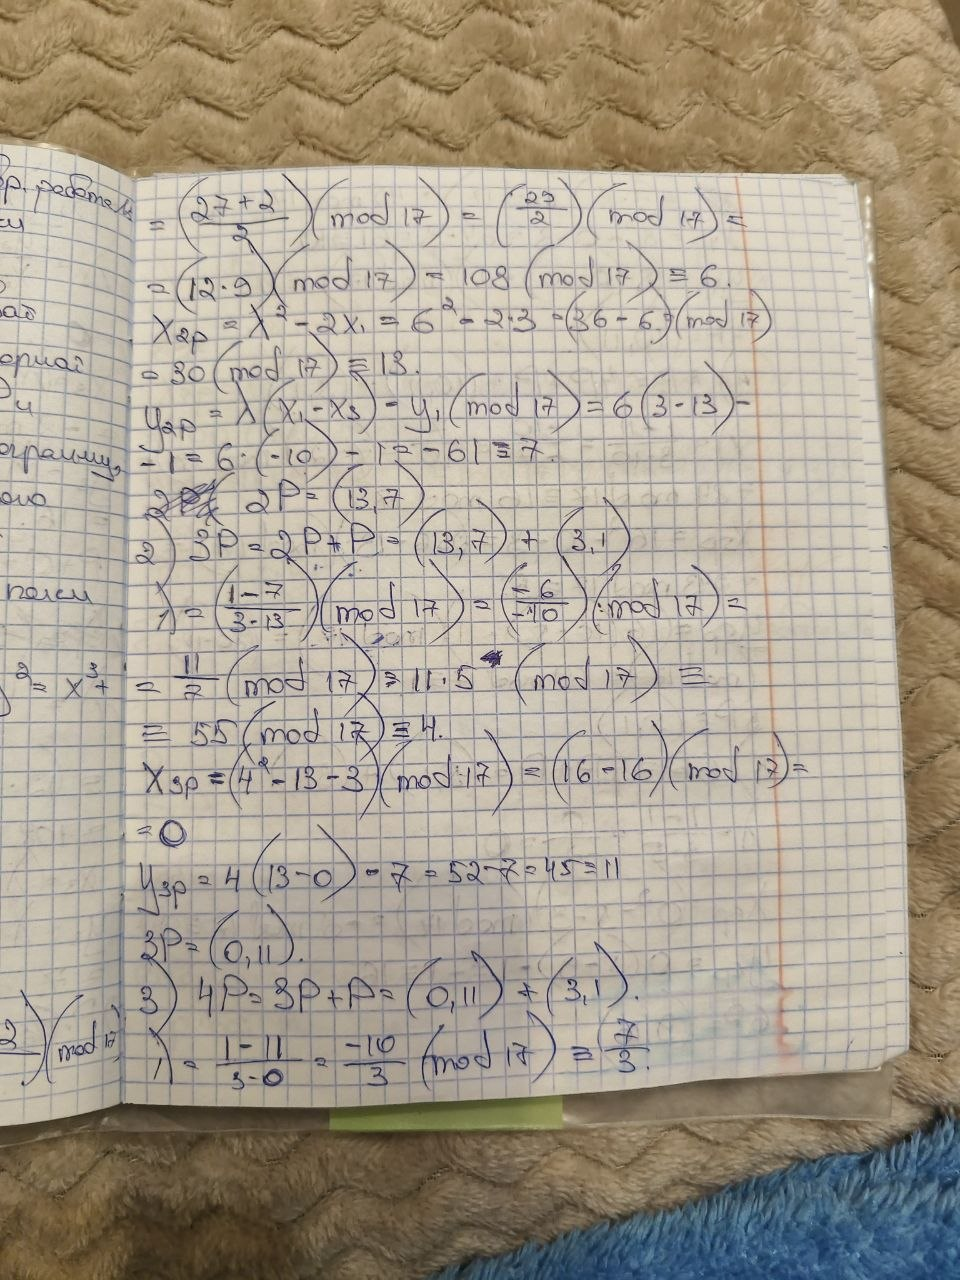 вр. работы
= (27+2/2)(mod 17) = (29/2)(mod 17) =
= (12·9)(mod 17) = 108 (mod 17) ≡ 6.
x₂ₚ = λ² - 2x₁ = 6² - 2·3 = (36-6)(mod 17)
= 30 (mod 17) ≡ 13.
y₂ₚ = λ(x₁-x₃) - y₁ (mod 17) = 6(3-13) -
- 1 = 6·(-10) - 1 = -61 ≡ 7.
2P = (13,7)
2) 3P = 2P + P = (13,7) + (3,1)
λ = (1-7/3-13)(mod 17) = (-6/-10)(mod 17) =
= 11/7 (mod 17) ≡ 11·5 (mod 17) ≡
≡ 55 (mod 17) ≡ 4.
x₃ₚ = (4²-13-3)(mod 17) = (16-16)(mod 17) =
= 0
y₃ₚ = 4(13-0) - 7 = 52-7 = 45 ≡ 11
3P = (0,11).
3) 4P = 3P + P = (0,11) + (3,1).
λ = 1-11/3-0 = -10/3 (mod 17) ≡ 7/3.
ограмму,
² = x³+
2)(mod 17)